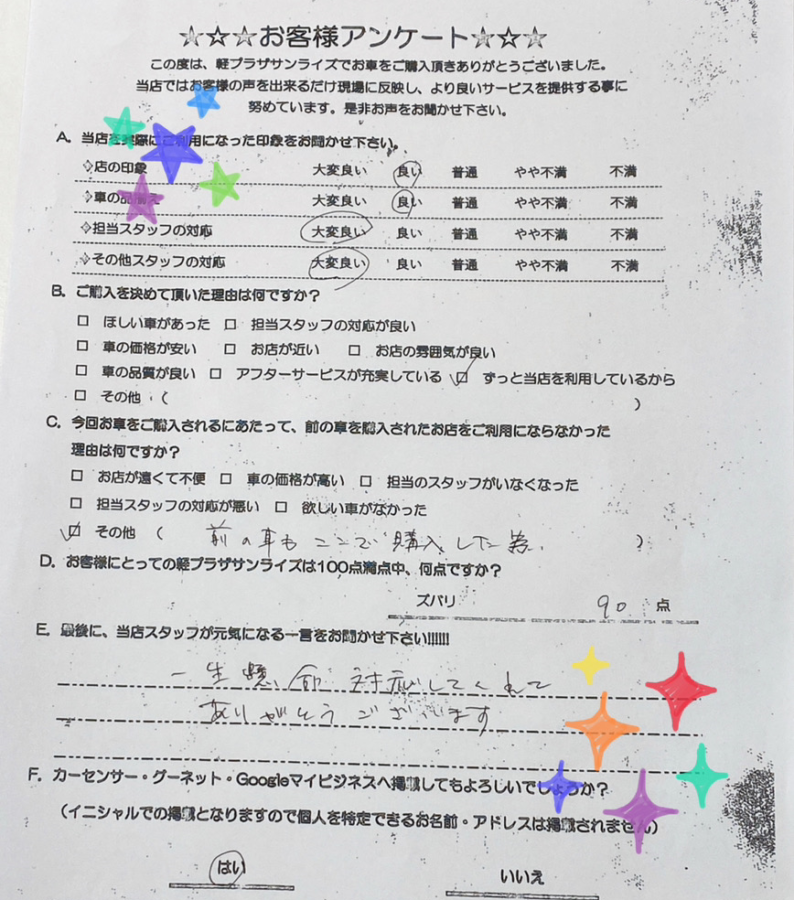 ☆☆☆お客様アンケート☆☆☆
この度は、軽プラザサンライズでお車をご購入頂きありがとうございました。
当店ではお客様の声を出来るだけ現場に反映し、より良いサービスを提供する事に
努めています。是非お声をお聞かせ下さい。
A. 当店を実際にご利用になった印象をお聞かせ下さい。
◇店の印象 大変良い 良い 普通 やや不満 不満
◇車の品揃え 大変良い 良い 普通 やや不満 不満
◇担当スタッフの対応 大変良い 良い 普通 やや不満 不満
◇その他スタッフの対応 大変良い 良い 普通 やや不満 不満
B. ご購入を決めて頂いた理由は何ですか？
□ ほしい車があった □ 担当スタッフの対応が良い
□ 車の価格が安い □ お店が近い □ お店の雰囲気が良い
□ 車の品質が良い □ アフターサービスが充実している ☑ ずっと当店を利用しているから
□ その他・（ ）
C. 今回お車をご購入されるにあたって、前の車を購入されたお店をご利用にならなかった
理由は何ですか？
□ お店が遠くて不便 □ 車の価格が高い □ 担当のスタッフがいなくなった
□ 担当スタッフの対応が悪い □ 欲しい車がなかった
☑ その他 （ 前の車もここで購入した為. ）
D. お客様にとっての軽プラザサンライズは100点満点中、何点ですか？
ズバリ 90 点
E. 最後に、当店スタッフが元気になる一言をお聞かせ下さい!!!!!!
一生懸命対応してくれて
ありがとうございます
F. カーセンサー・グーネット・Googleマイビジネスへ掲載してもよろしいでしょうか？
（イニシャルでの掲載となりますので個人を特定できるお名前・アドレスは掲載されません）
はい いいえ